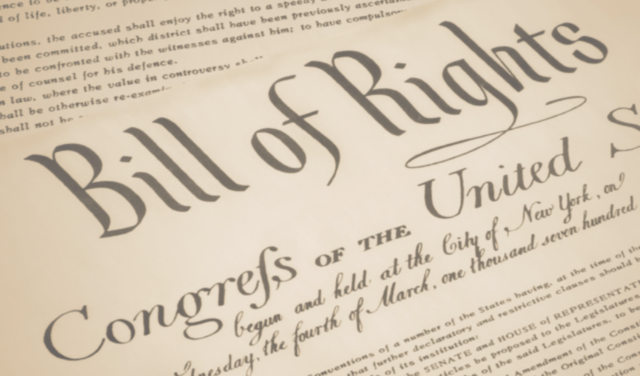 of life, liberty, or
utions, the accused shall enjoy the right to a speedy
been committed, which district shall have been previously
to be confronted with the witnesses against him; to have
e of counsel for his defence.
n law, where the value in controversy
hall be otherwise
shall not be
Bill of Rights
Congreſs OF THE United S
begun and held at the City of New York, on
dnesday, the fourth of March, one thousand seven hundred
onventions of a number of the States having, at the time of the
that further declaratory and restrictive clauses should
of its institution:
SENATE and HOUSE of REPRESENTAT
ticles be proposed to the Legislatures
of the said Legislatures, to be
Amendment of the Cons
the Original Constit